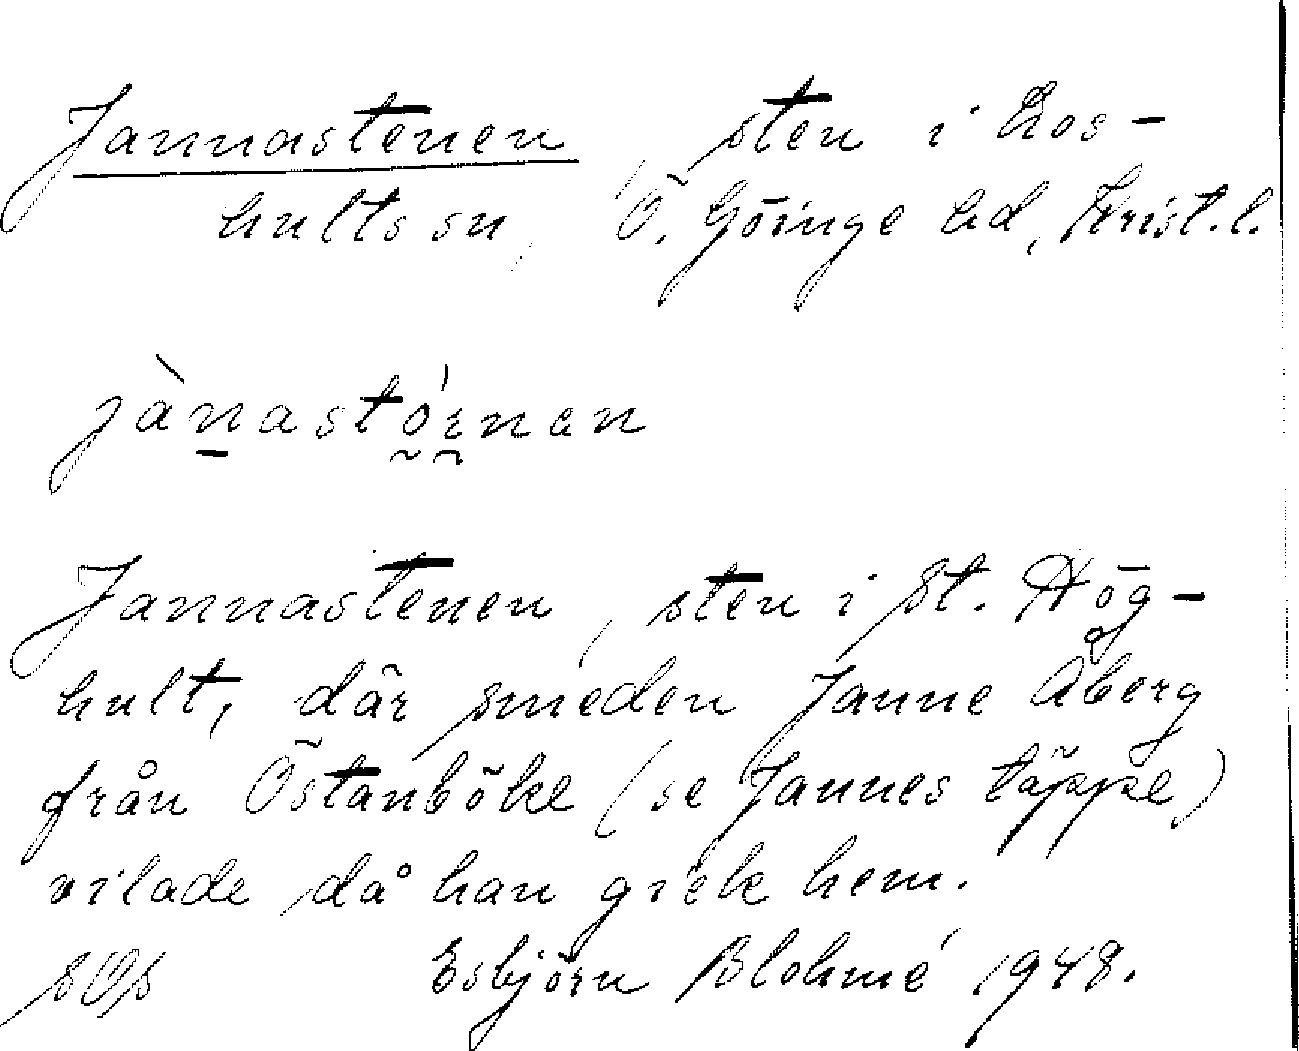 Jannastenen, sten i Los-
hults sn, Ö. Göinge hd, Krist.l.
jànastó̰rnan
Jannastenen, sten i St. Hög-
hult, där smeden Janne Åberg
från Östanböke (se Jannes täppe)
vilade då han gick hem.
Esbjörn Blohmé 1948.